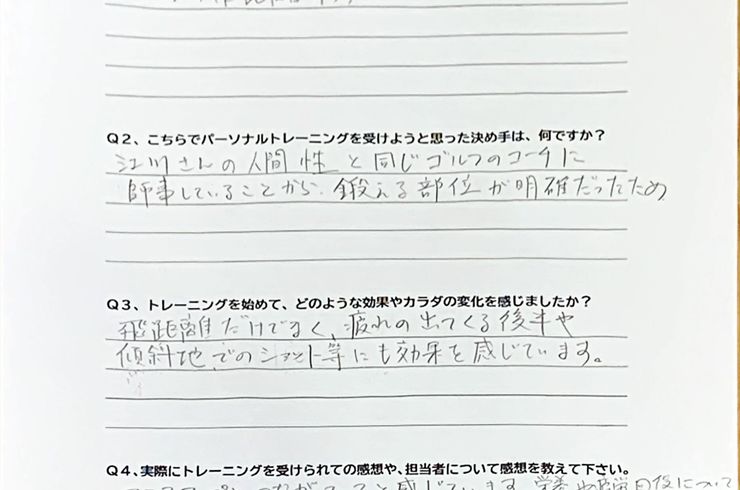 Q2、こちらでパーソナルトレーニングを受けようと思った決め手は、何ですか？
江川さんの人間性と同じゴルフのコーチに
師事していることから、鍛える部位が明確だったため
Q3、トレーニングを始めて、どのような効果やカラダの変化を感じましたか？
飛距離だけでなく、疲れの出てくる後半や
傾斜地でのショット等にも効果を感じています。
Q4、実際にトレーニングを受けられての感想や、担当者について感想を教えて下さい。